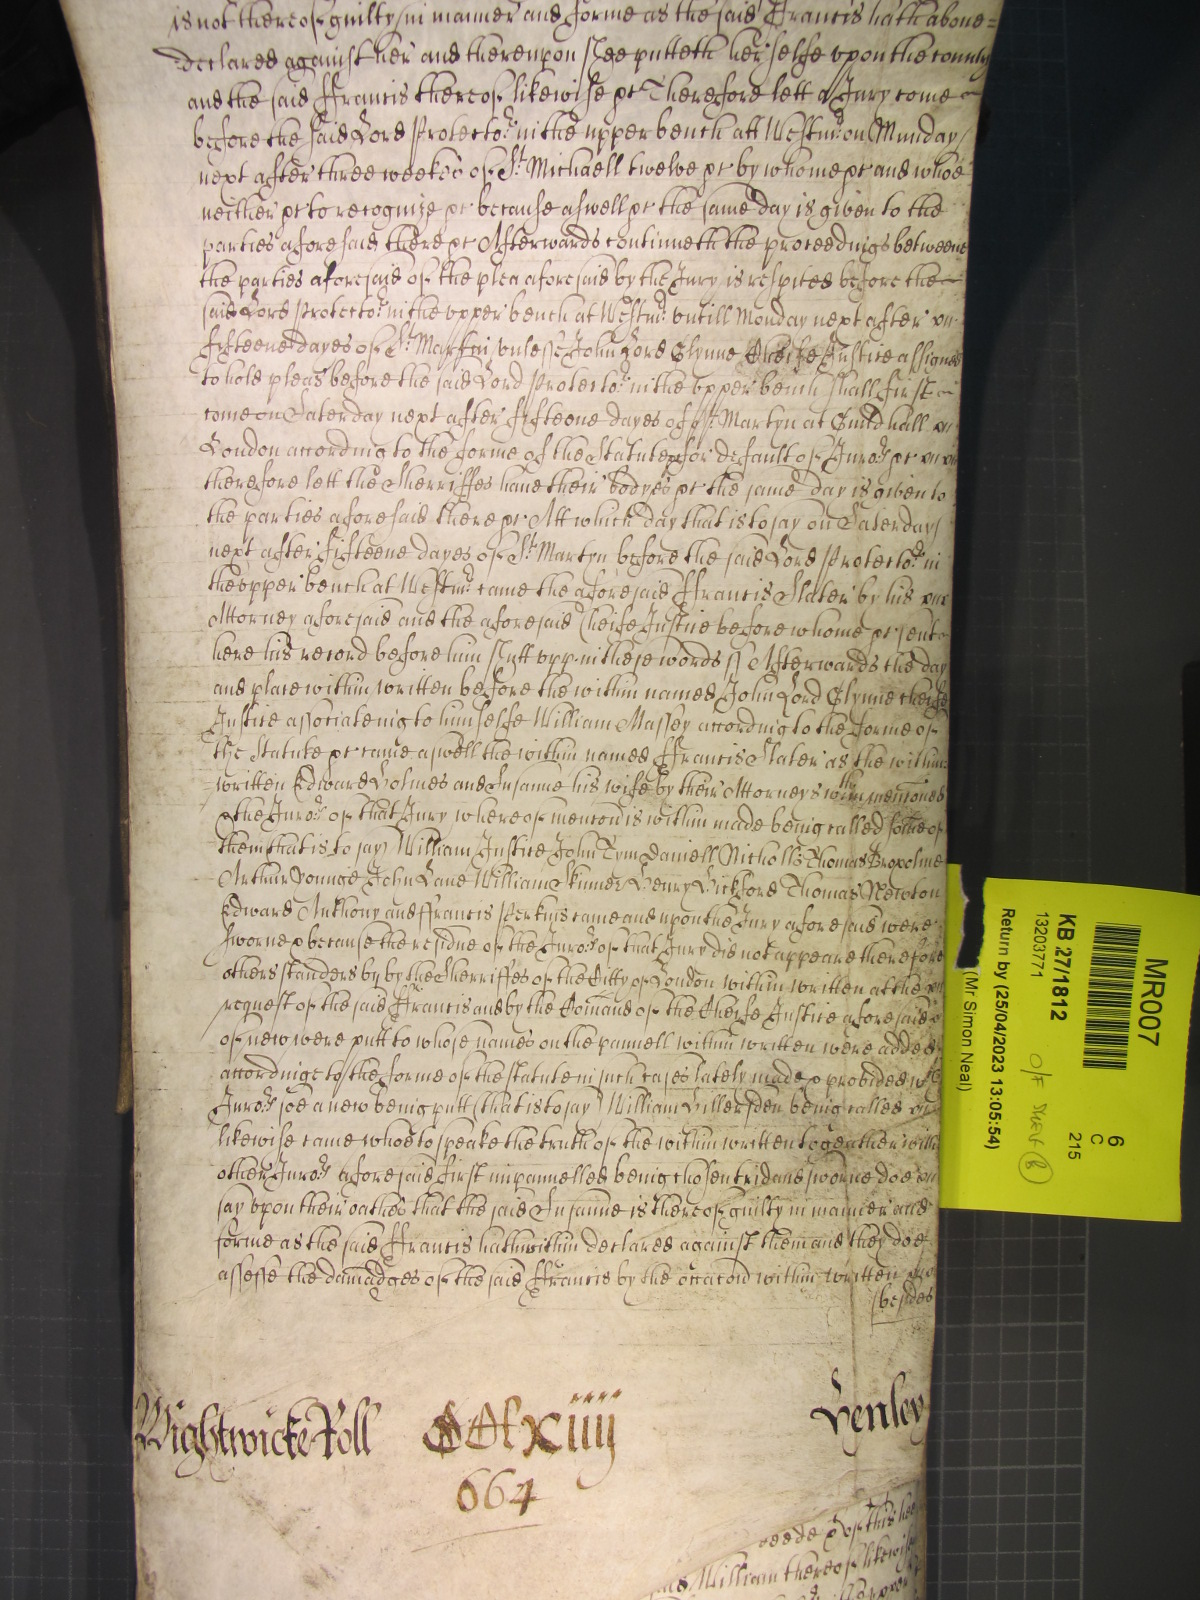 is not thereof guilty in manner and forme as the said Francis hath above
declared against her and thereupon shee putteth her selfe upon the country
and the said Ffrancis thereof likewise &c Therefore lett a Jury come
before the said Lord Protector in the upper bench att Westmr on Munday
next after three weekes of St Michaell twelve &c by whome &c and whoe
neither &c to recognize &c because aswell &c the same day is given to the
parties aforesaid there &c Afterwards continueth the proceedings betweene
the parties aforesaid of the plea aforesaid by the Jury is respited before the
said Lord Protector in the upper bench at Westmr untill Monday next after
fifteene dayes of St Martin unlesse John Lord Glynne Cheife Justice assigned
to hold pleas before the said Lord Protector in the upper bench shall first
come on Saterday next after fifteene dayes of St Martyn at Guildhall
London according to the forme of the Statute for default of Jurors &c
therefore lett the Sherriffes have their bodyes &c the same day is given to
the parties aforesaid there &c Att which day that is to say on Saterday
next after fifteene dayes of St Martyn before the said Lord Protector in
the upper bench at Westmr came the aforesaid Ffrancis Slater by his
Attorney aforesaid and the aforesaid Cheife Justice before whome &c sent
here his record before him had upp in these words ss Afterwards the day
and place within written before the within named John Lord Glynne cheife
Justice associateing to himselfe William Massey according to the forme of
the Statute &c came aswell the within named Ffrancis Slater as the within
written Edward Holmes and Susanne his wife by their Attorneys within menconed
& the Jurors of that Jury whereof mencon is within made being called some of
them that is to say William Justice John Tym Daniell Nicholls Thomas Broxolme
Arthur Younge John Lane William Skinner Henry Bickford Thomas Newton
Edward Anthony and Ffrancis Perkins came and upon the Jury aforesaid were
sworne & because the residue of the Jurors of that Jury did not appeare therefore
others standers by by the Sherriffes of the Citty of London within written at the
request of the said Ffrancis and by the Comand of the Cheife Justice aforesaid
of new were putt to whose names on the pannell within written were added
according to the forme of the statute in such cases lately made & provided wch
Jurors soe a new being putt (that is to say) William Hillersden being called
likewise came whoe to speake the truth of the within written togeather with
other Jurors aforesaid first inpannelled being chosen tried and sworne doe
say upon their oathes that the said Susanne is thereof guilty in manner and
forme as the said Ffrancis hath within declared against them and they doe
assesse the damadges of the said Ffrancis by the occacon within written
besides
Wightwicke Roll
664
Henley
MR007
KB 27/1812
13203771
Return by (25/04/2023 13:05:54)
(Mr Simon Neal)
6
C
215
O/F SHELF B
said William thereof likewise